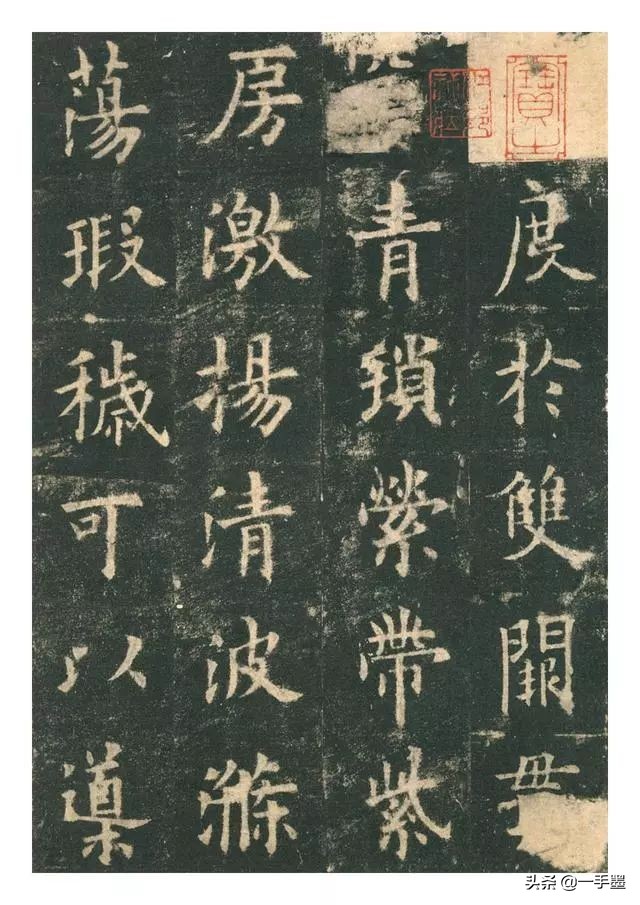 度於雙闕
青鎖縈帶紫
房激揚清波滌
蕩瑕穢可以導
头条 @一手墨